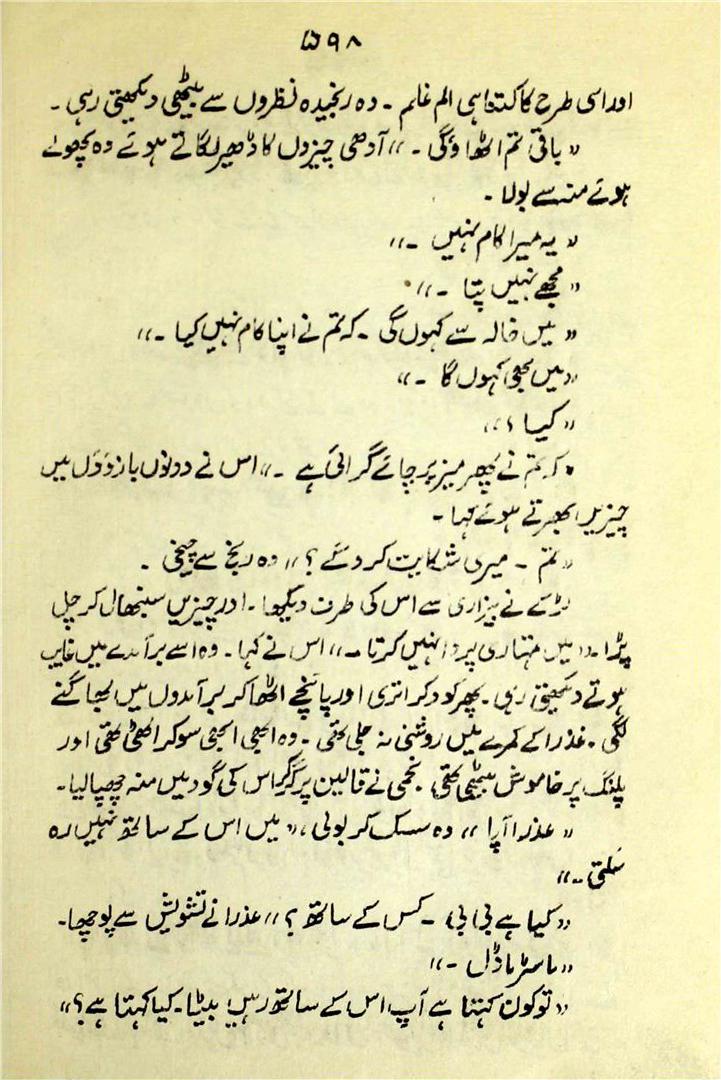 ۵۹۸
اور اسی طرح کا کتنا ہی الم غلم ۔ وہ رنجیدہ نظروں سے بیٹھی دیکھتی رہی ۔
« باقی تم اٹھاؤ گی ۔ » آدھی چیزوں کا ڈھیر لگاتے ہوئے وہ پھولے
ہوئے منہ سے بولا ۔
« یہ میرا کام نہیں ۔ »
« مجھے نہیں پتا ۔ »
« میں خالہ سے کہوں گی ۔ کہ تم نے اپنا کام نہیں کیا ۔ »
« میں بھی کہوں گا ۔ »
« کیا ؟ »
« کہ تم نے پھر میز پر چائے گرائی ہے ۔ » اس نے دونوں بازوؤں میں
چیزیں بھرتے ہوئے کہا ۔
« تم ۔ میری شکایت کرو گے ؟ » وہ رنج سے چیخی ۔
لڑکے نے بیزاری سے اس کی طرف دیکھا ۔ اور چیزیں سنبھال کر چل
پڑا ۔ « میں تمہاری پروا نہیں کرتا ۔ » اس نے کہا ۔ وہ اسے برآمدے میں غایب
ہوتے دیکھتی رہی ۔ پھر کود کر اتری اور پائنچے اٹھا کر برآمدوں میں بھاگنے
لگی ۔ عذرا کے کمرے میں روشنی نہ جلی تھی ۔ وہ ابھی ابھی سو کر اٹھی تھی اور
پلنگ پر خاموش بیٹھی تھی ۔ نجمی نے قالین پر گر کر اس کی گود میں منہ چھپا لیا ۔
« عذرا آپا » وہ سسک کر بولی ، « میں اس کے ساتھ نہیں رہ
سکتی ۔ »
« کیا ہے بی بی ۔ کس کے ساتھ ؟ » عذرا نے تشویش سے پوچھا ۔
« ماسٹر باڈل ۔ »
« تو کون کہتا ہے آپ اس کے ساتھ رہیں بیٹا ۔ کیا کہتا ہے ؟ »